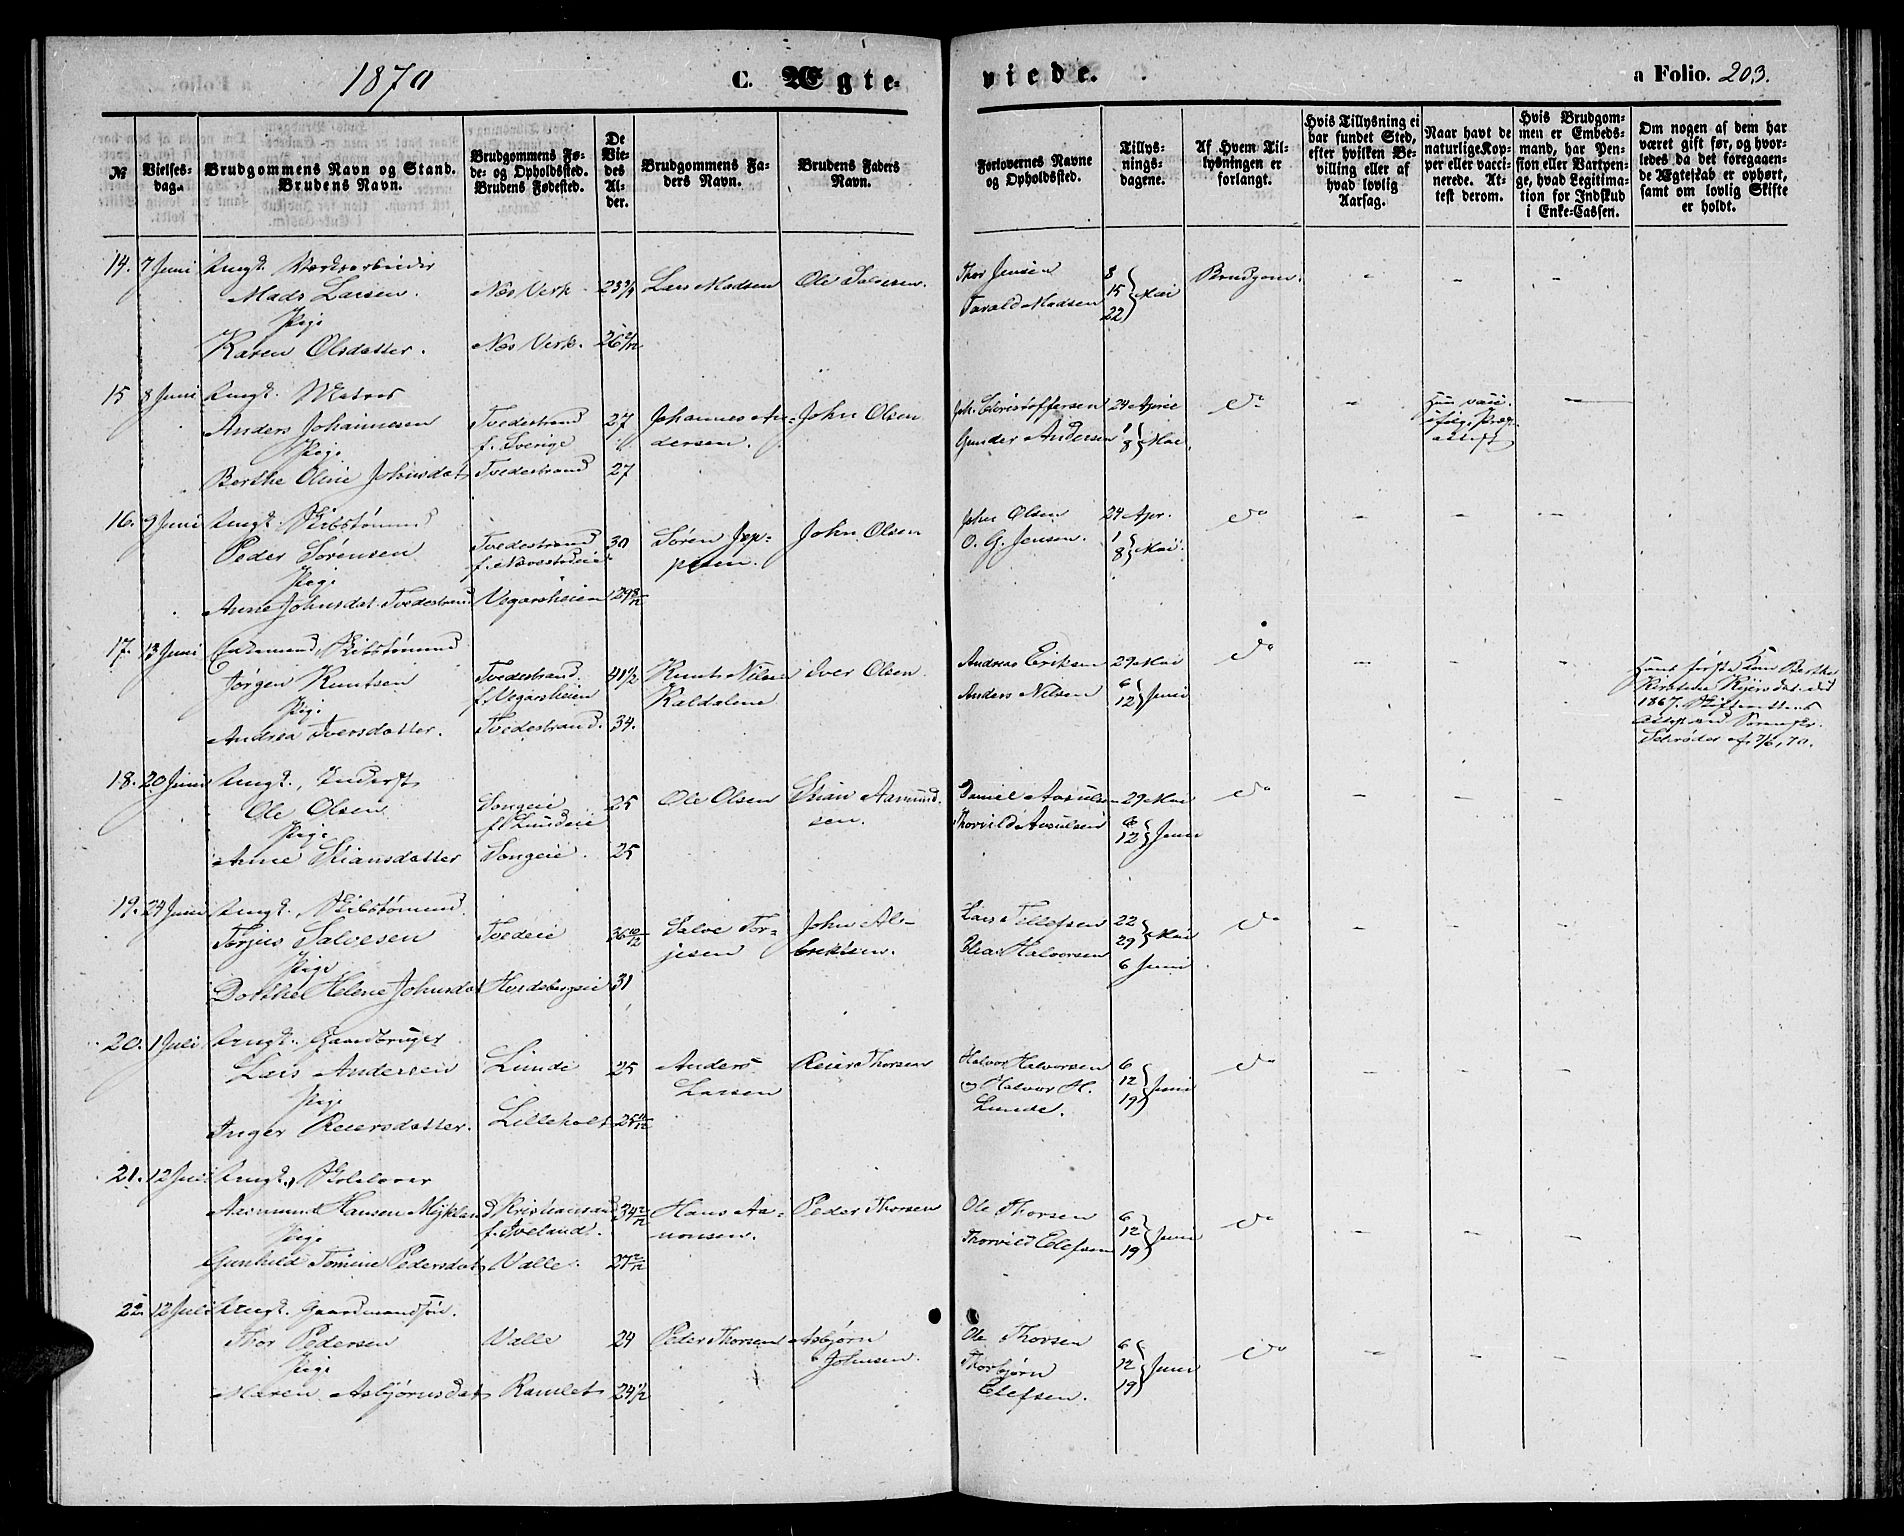 1870
C. Ægte-
viede.
a Folio. 203.
№
Vielses-
dag.
Brudgommens Navn og Stand.
Brudens Navn.
Brudgommens Fø-
de- og Opholdssted.
Brudens Fødested.
De
Vie-
des
Al-
der.
Brudgommens Fa-
ders Navn.
Brudens Faders
Navn.
Forlovernes Navne
og Opholdssted.
Tillys-
nings-
dagene.
Af Hvem Til-
lysningen er
forlangt.
Hvis Tillysning ei
har fundet Sted,
efter hvilken Be-
villing eller af
hvad lovlig
Aarsag.
Naar havt de
naturlige Kop-
per eller vacci-
nerede. At-
test derom.
Hvis Brudgom-
men er Embeds-
mand, har Pen-
sion eller Vartpen-
ge, hvad Legitima-
tion for Indskud
i Enke-Cassen.
Om nogen af dem har
været gift før, og hvor-
ledes da det foregaaen-
de Ægteskab er ophørt,
samt om lovlig Skifte
er holdt.
14. 7 Juni Ungk. Værksarbeider
Mads Larsen. Næs Verk. Lars Madsen Ole Salvesen. Thor Jensen 8
Pige Tarald Madsen 15 Mai Brudgom.
22
Karen Olsdatter. Næs Verk. 26
15 8 Juni Ungk. Matros
Anders Johannesen Tvedestrand 27 Johannes An- John Olsen Joh. Christoffersen 24 April do
Pige f. Sverige dersen. Gunder Andersen 1 8 Mai
Berthe Oline Johnsdat Tvedestrand 27
16. 9 Juni Ungk. Skibstømmd
Peder Sørensen Tvedestrand 30 Søren Jep- John Olsen John Olsen 24 Apr. do
Pige pesen. O. G. Jensen. 1 8 Mai
Anne Johnsdat. Tvedestrand Vegarsheien 29 8/12
17. 13 Juni Enkemand, Skibstømmd
Jørgen Knutsen Tvedestrand 41 1/2 Knut Nilsen Iver Olsen Andreas Eriksen 29 Mai do
Pige f. Vegarsheien Kaldalene Anders Nilsen 6 12 Juni
Andrea Iversdatter. Tvedestrand. 34.
Hans første Kone Berthe
1867. Skifte
Schrøder af 7/6, 70.
18. 20 Juni Ungk., Inderst
Ole Olsen Songeie 25 Ole Olsen Stian Aamund- Daniel 29 Mai do
Pige f. Lundeie sen. Thorvild 6 12 Juni
Anne Stiansdatter Songeie. 25
19. 24 Juni Ungk. Skibstømmd.
Torjus Salvesen Tvedeie 36 10/12 Salve Tor- John Al- Lars Tellefsen 22 do
Pige jesen brektsen. Halvorsen 29 Mai
6 Juni
Dorthe Helene Johnsdat 31
20. 1 Juli Ungk. Gaardbruger
Lars Andersen Lunde 25 Anders Reier Thorsen Halvor Halvorsen 6 do
Pige Larsen og Halvor H. 12 Juni
Lunde. 19
Inger Reiersdatter. Lilleholt 25 11/12
21. 12 Juli Ungk.,
Aasmund Hansen Mykland Kristiansand 34 2/12 Hans Aa- Peder Thorsen Ole Thorsen 6 do
Pige f. Iveland. nonsen. Thorvild Elefsen 12 Juni
19
Gunhild Tomine Pedersdat Valle. 27 2/12
22 12 Juli Ungk. Gaardmandsøn.
Thor Pedersen Valle 24 Peder Thorsen Asbjørn Ole Thorsen 6 do
Pige Johnsen. Thorbjørn 12 Juni
Elefsen. 19
Maren Asbjørnsdat Ramlet 24 1/2